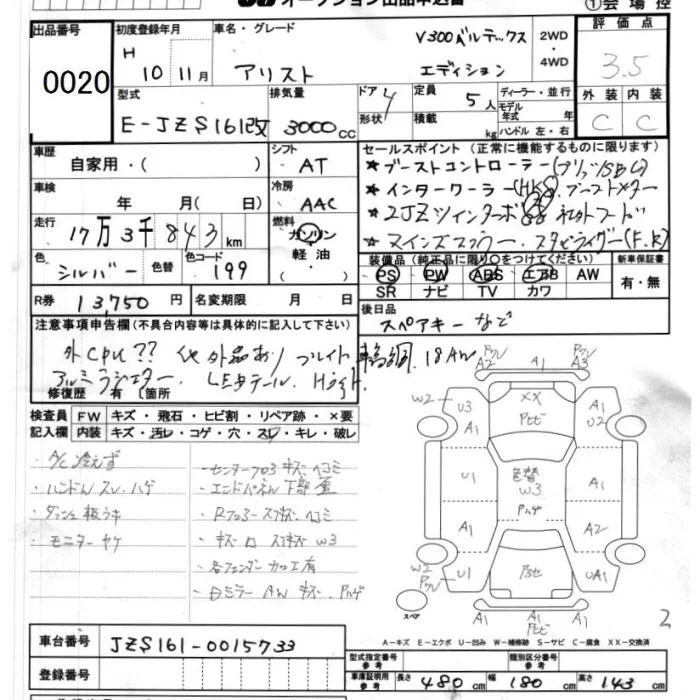 ①会場控
出品番号
0020
初度登録年月
H 10 11月
車名・グレード
アリスト
V300ベルテックス
エディション
2WD
・
4WD
評価点
3.5
外装 内装
C C
型式
E-JZS161改
排気量
3000cc
ドア 4
形状
定員 5人
積載 kg
ディーラー・並行
モデル年式 年
ハンドル 左・右
車歴
自家用・( )
シフト
AT
車検
年 月( 日)
冷房
AAC
走行
17万3千843km
燃料
ガソリン
軽油
・( )
色
シルバー
色替
色コード
199
R券
13,750円
名変期限 月 日
セールスポイント (正常に機能するものに限ります)
★ブーストコントローラー(プリブSBC)
★インタークーラー(HKS)ブーストメーター
★2JZツインターボ
★マインズマフラー.スタビライザー(F,R)
装備品(純正品に限り○をつけてください)
PS PW ABS エアB AW
SR ナビ TV カワ
新車保証書
有・無
後日品
スペアキーなど
注意事項申告欄(不具合内容等は具体的に記入して下さい)
外CPU?? 他外品あり ブレイト車高調.18AW
アルミラジエター. LEDテール. Hライト.
修復歴 有 〔箇所
検査員 FW キズ・飛石・ヒビ割・リペア跡・×要
記入欄 内装 キズ・汚レ・コゲ・穴・スレ・キレ・破レ
・A/C冷えず
・ハンドルスレ.ハゲ
・ダッシュ板ウキ
・モニターヤケ
・センターフロアキズヘコミ
・エンドパネル下部歪
・Rフロアースプキズ.ヘコミ
・キズ ロ スプキズ W3
・各フェンダー加工有
・白ミラー AWキズ.Pハゲ
Pクレ A2
A1
Pクレ A3
W2
U3
A1
XX
Pトビ
A1
U2
U1
色替
W3
Pハゲ
A1
A1
A2
W2
Pクレ
U1
Pヨセ
UA1
A1
A1
Pトビ
A1
スペア
2
A-キズ E-エクボ U-凹み W-補修跡 S-サビ C-腐食 XX-交換済
車台番号
JZS161-0015733
登録番号
型式指定番号
参考
類別区分番号
参考
車庫証明用
参考
長さ 480cm
幅 180cm
高さ 143cm